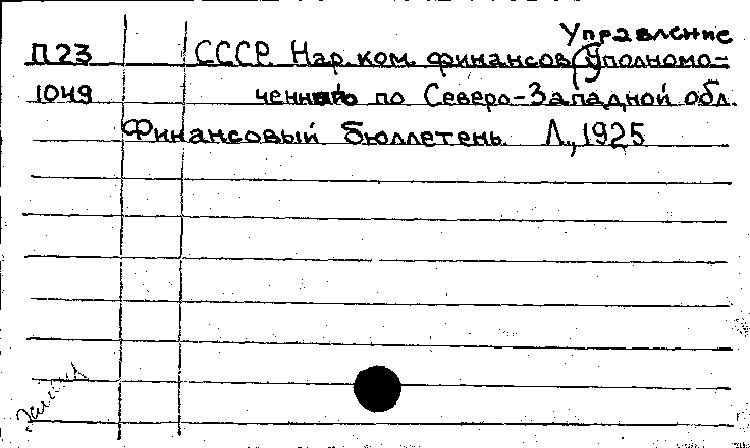 Управление
П23 СССР. Нар. ком. финансов. Уполномо-
1049 по Северо-Западной обл.
Финансовый бюллетень. Л., 1925